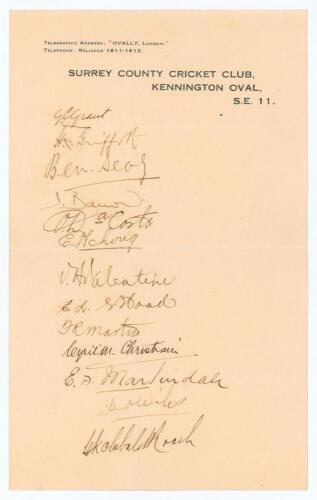 TELEGRAPHIC ADDRESS: "OVALLY, LONDON."
TELEPHONE: RELIANCE 1811-1812.
SURREY COUNTY CRICKET CLUB,
KENNINGTON OVAL,
S.E. 11.
G C Grant
H. C. Griffith
Ben. Sealy
I. Barrow
O. C. Da Costa
E. E. Achong
V. A. Valentine
E. L. G. Hoad
F R Martin
Cyril M. Christiani
E. A. Martindale
C A Wiles
Clifford Archibald Roach